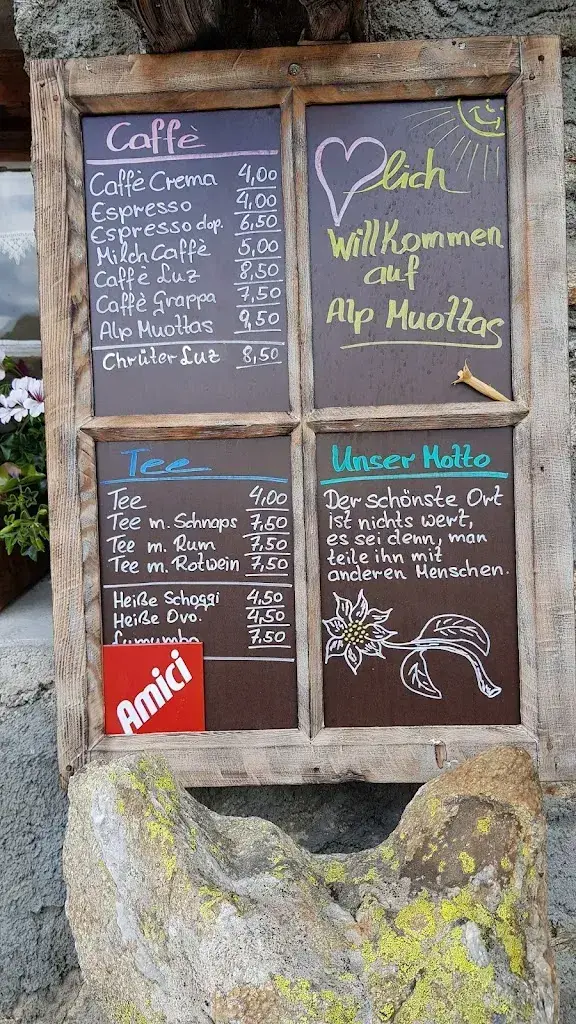 Caffè
Caffè Crema 4,00
Espresso 4,00
Espresso dop. 6,50
Milch Caffè 5,00
Caffè Luz 8,50
Caffè Grappa 7,50
Alp Muottas 9,50
Chrüter Luz 8,50
lich
Willkommen
auf
Alp Muottas
Tee
Tee 4,00
Tee m. Schnaps 7,50
Tee m. Rum 7,50
Tee m. Rotwein 7,50
Heiße Schoggi 4,50
Heiße Ovo. 4,50
Lumumba 7,50
Amici
Unser Motto
Der schönste Ort
ist nichts wert,
es sei denn, man
teile ihn mit
anderen Menschen.